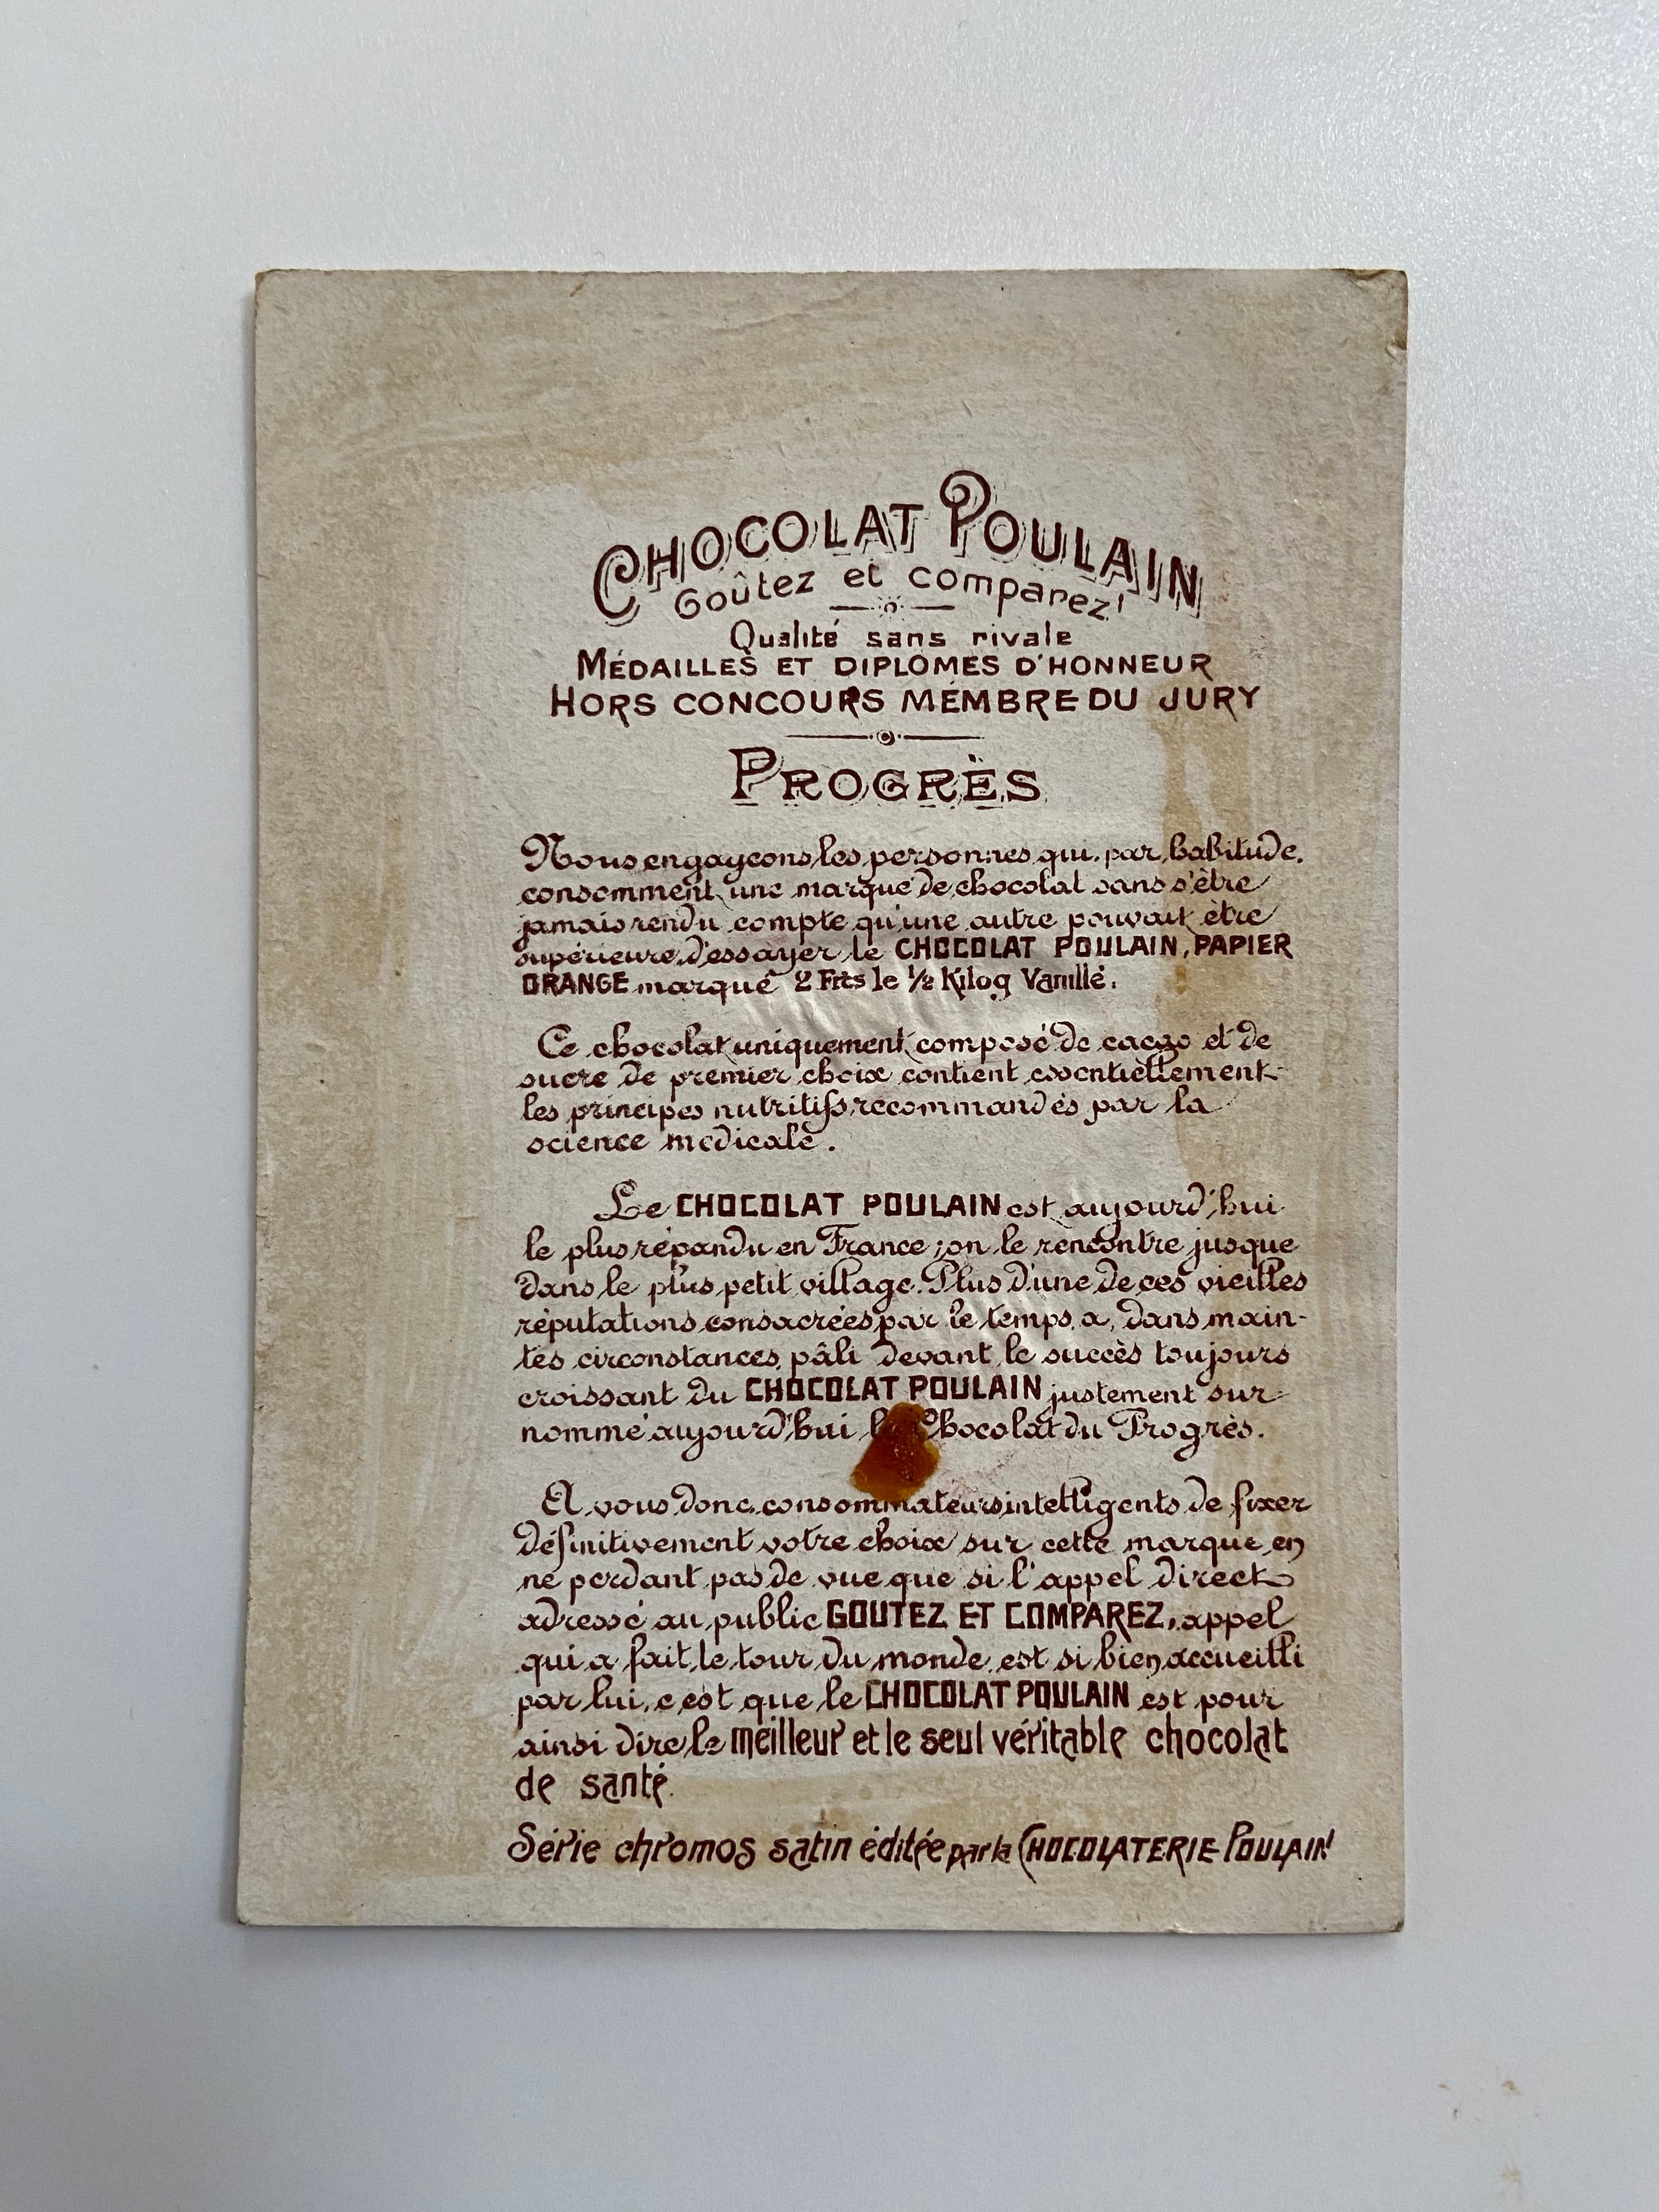 CHOCOLAT POULAIN
Goûtez et comparez!
Qualité sans rivale
MÉDAILLES ET DIPLOMES D'HONNEUR
HORS CONCOURS MEMBRE DU JURY
PROGRÈS
Nous engageons les personnes qui, par habitude,
consomment une marque de chocolat sans s'être
jamais rendu compte qu'une autre pouvait être
supérieure, d'essayer le CHOCOLAT POULAIN, PAPIER
ORANGE marqué 2 Frcs le ½ Kilog Vanillé.
Ce chocolat uniquement composé de cacao et de
sucre de premier choix contient essentiellement
les principes nutritifs recommandés par la
science médicale.
Le CHOCOLAT POULAIN est aujourd'hui
le plus répandu en France; on le rencontre jusque
dans le plus petit village. Plus d'une de ces vieilles
réputations consacrées par le temps, a, dans main-
tes circonstances, pâli devant le succès toujours
croissant du CHOCOLAT POULAIN justement sur-
nommé aujourd'hui le Chocolat du Progrès.
A vous donc, consommateurs intelligents de fixer
définitivement votre choix sur cette marque en
ne perdant pas de vue que si l'appel direct
adressé au public GOUTEZ ET COMPAREZ, appel
qui a fait le tour du monde est si bien accueilli
par lui, c'est que le CHOCOLAT POULAIN est pour
ainsi dire le meilleur et le seul véritable chocolat
de santé.
Série chromos satin éditée par la CHOCOLATERIE POULAIN